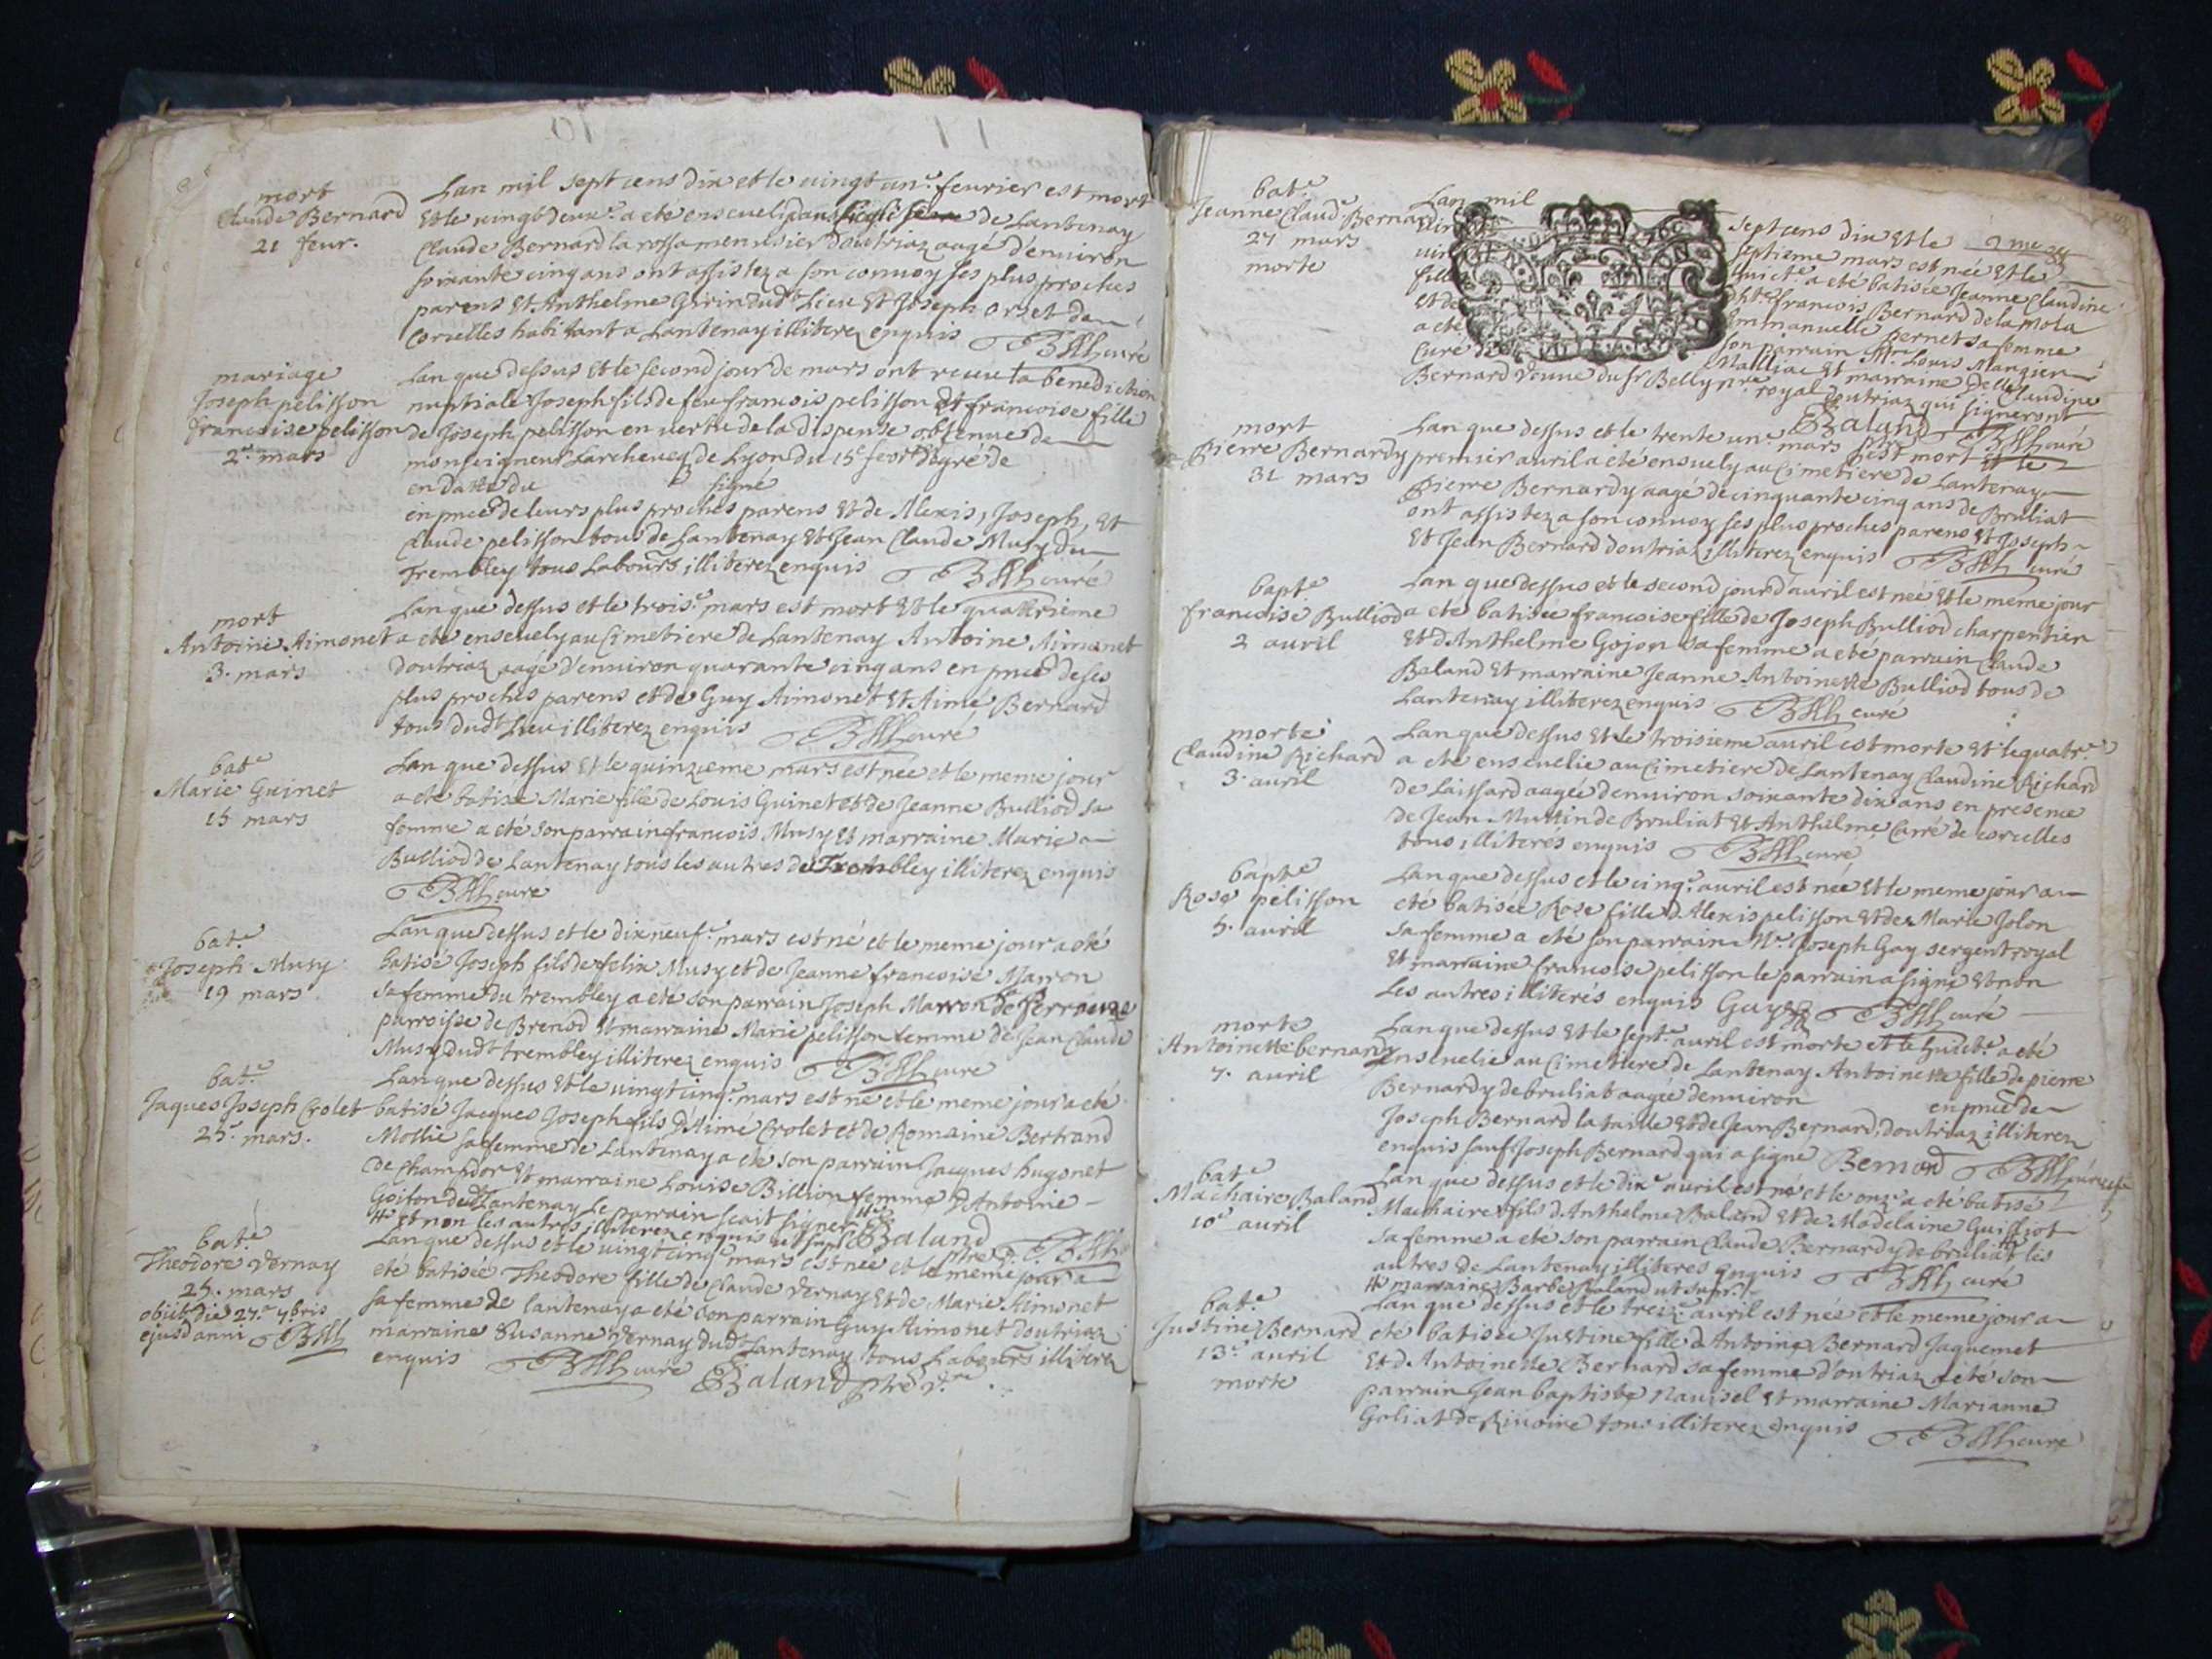 mort
Claude Bernard
21 feur.
Lan mil sept cens dix et le uingt un.e feurier est mort
Et le uingt deux.e a eté enseueli dans de Lantenay
Claude Bernard la rossa menusier doutriaz aagé d'enuiron
soixante cinq ans ont assistez a son conuoy ses plus proches
parens Et Anthelme Girin dud.t Lieu Et Joseph orset de
Corcelles habitant a Lantenay illiterez enquis curé
mariage
Joseph pelisson
francoise pelisson
2.e mars
Lan que dessus Et le second jour de mars ont receu la benediction
nuptiale Joseph fils de feu francois pelisson Et francoise fille
de Joseph pelisson en uertu de la dispense obtenue de
monseigneur Larcheueq de Lyon du 15e de
en datte du signé
en pnce de leurs plus proches parens Et de Alexis, Joseph, Et
Claude pelisson tous de Lantenay Et Jean Claude Musy du
Trembley tous Labours illiterez enquis curé
mort
Antoine Aimonet
3. mars
Lan que dessus et le trois.e mars est mort Et le quattrieme
a eté enseuely au Cimetiere de Lantenay Antoine Aimonet
doutriaz aagé d'enuiron quarante cinq ans en pnce de ses
plus proches parens et de Guy Aimonet Et Aimé Bernard
tous dud.t Lieu illiterez enquis curé
bat.e
Marie Guinet
15 mars
Lan que dessus Et le quinzieme mars est née et le meme jour
a eté batisée Marie fille de Louis Guinet et de Jeanne Bulliod sa
femme a eté son parrain francois Musy Et marraine Marie
Bulliod de Lantenay tous les autres du Trembley illiterez enquis
curé
bat.e
Joseph Musy
19 mars
Lan que dessus et le dix neuf.e mars est né et le meme jour a eté
batisé Joseph fils de felix Musy et de Jeanne francoise Marron
sa femme du trembley a eté son parrain Joseph Marron de
parroisse de Brenod Et marraine Marie pelisson femme de Jean Claude
Musy dud.t trembley illiterez enquis curé
bat.e
Jaques Joseph Crolet
25.e mars.
Lan que dessus Et le uingt cinq.e mars est né et le meme jour a eté
batisé Jacques Joseph fils d'Aimé Crolet et de Romaine Bertrand
Mollie sa femme de Lantenay a eté son parrain Jacques hugonet
de Champdor Et marraine Louise Billion femme d'Antoine
Goiton dud.t Lantenay Le parrain scait signer
Et non les autres illiterez enquis ut sup. Baland
bat.e
Theodore Vernay
25. mars
obiit die 27.a 7bris
ejusd anni
Lan que dessus et le uingt cinq.e mars est née et le meme jour a
eté batisée Theodore fille de Claude Vernay Et de Marie Aimonet
sa femme de lantenay a eté son parrain Guy Aimonet doutriaz
marraine Susanne Vernay dud.t Lantenay tous Labours illiterez
enquis curé Baland ptre
bat.e
Jeanne Claud.e Bernard
27 mars
morte
Lan mil sept cens dix Et le
septieme mars est née Et le
huict.e a eté batisée Jeanne Claudine
fille francois Bernard de la Mola
et de mmanuelle pernet sa femme
a eté son parrain Mr. Louis Mangier
Curé de Mailliac Et marraine
Claudine
Bernard Veuue du sr Belly royal doutriaz qui signeront
Baland curé
mort
Pierre Bernardy
31 mars
Lan que dessus et le trente un.e mars est mort Et le
premier auril a eté enseuely au Cimetiere de Lantenay
Pierre Bernardy aagé de cinquante cinq ans de Bruliat
ont assistez a son conuoy ses plus proches parens Et Joseph
Et Jean Bernard doutriaz illiterez enquis curé
bapt.e
francoise Bulliod
2 auril
Lan que dessus et le second jour d'auril est née Et le meme jour
a eté batisée francoise fille de Joseph Bulliod charpentier
Et d'Anthelme Gojon sa femme a eté parrain Claude
Baland Et marraine Jeanne Antoinette Bulliod tous de
Lantenay illiterez enquis curé
morte
Claudine Richard
3. auril
Lan que dessus Et le troisieme auril est morte Et le quatr.e
a eté enseuelie au Cimetiere de Lantenay Claudine Richard
de Laissard aagée denuiron soixante dix ans en presence
de Jean Muttin de Bruliat Et Anthelme Carré de corcelles
tous illiterés enquis curé
bapt.e
Rose pelisson
5. auril
Lan que dessus et le cinq.e auril est née Et le meme jour a
eté batisée Rose fille d'Alexis pelisson Et de Marie Jolon
sa femme a eté son parrain Mr. Joseph Gay sergent royal
Et marraine francoise pelisson le parrain a signé Et non
Les autres illiterés enquis Guy curé
morte
Antoinette bernardy
7. auril
Lan que dessus Et le sept.e auril est morte et le huict.e a eté
enseuelie au Cimetiere de Lantenay Antoinette fille de pierre
Bernardy de bruliat aagée denuiron en pnce de
Joseph Bernard la taille Et de Jean Bernard, doutriaz illiterez
enquis sauf Joseph Bernard qui a signé Bernard
bat.e
Machaire Baland
10e auril
Lan que dessus et le dix.e auril est né et le onz.e a eté batisé
Machaire fils d'Anthelme Baland Et de Madelaine Guilliot
sa femme a eté son parrain Claude Bernardy de bruliat les
autres de Lantenay illiteres enquis curé
marraine Barbe Baland ut supr.
bat.e
Justine Bernard
13.e auril
morte
Lan que dessus et le treiz.e auril est née et le meme jour a
eté batisée Justine fille d'Antoine Bernard Jaquemet
Et d'Antoinette Bernard sa femme d'outriaz a été son
parrain Jean baptiste Nauisel Et marraine Marianne
Goliat de Riuoire tous illiterez enquis
curé